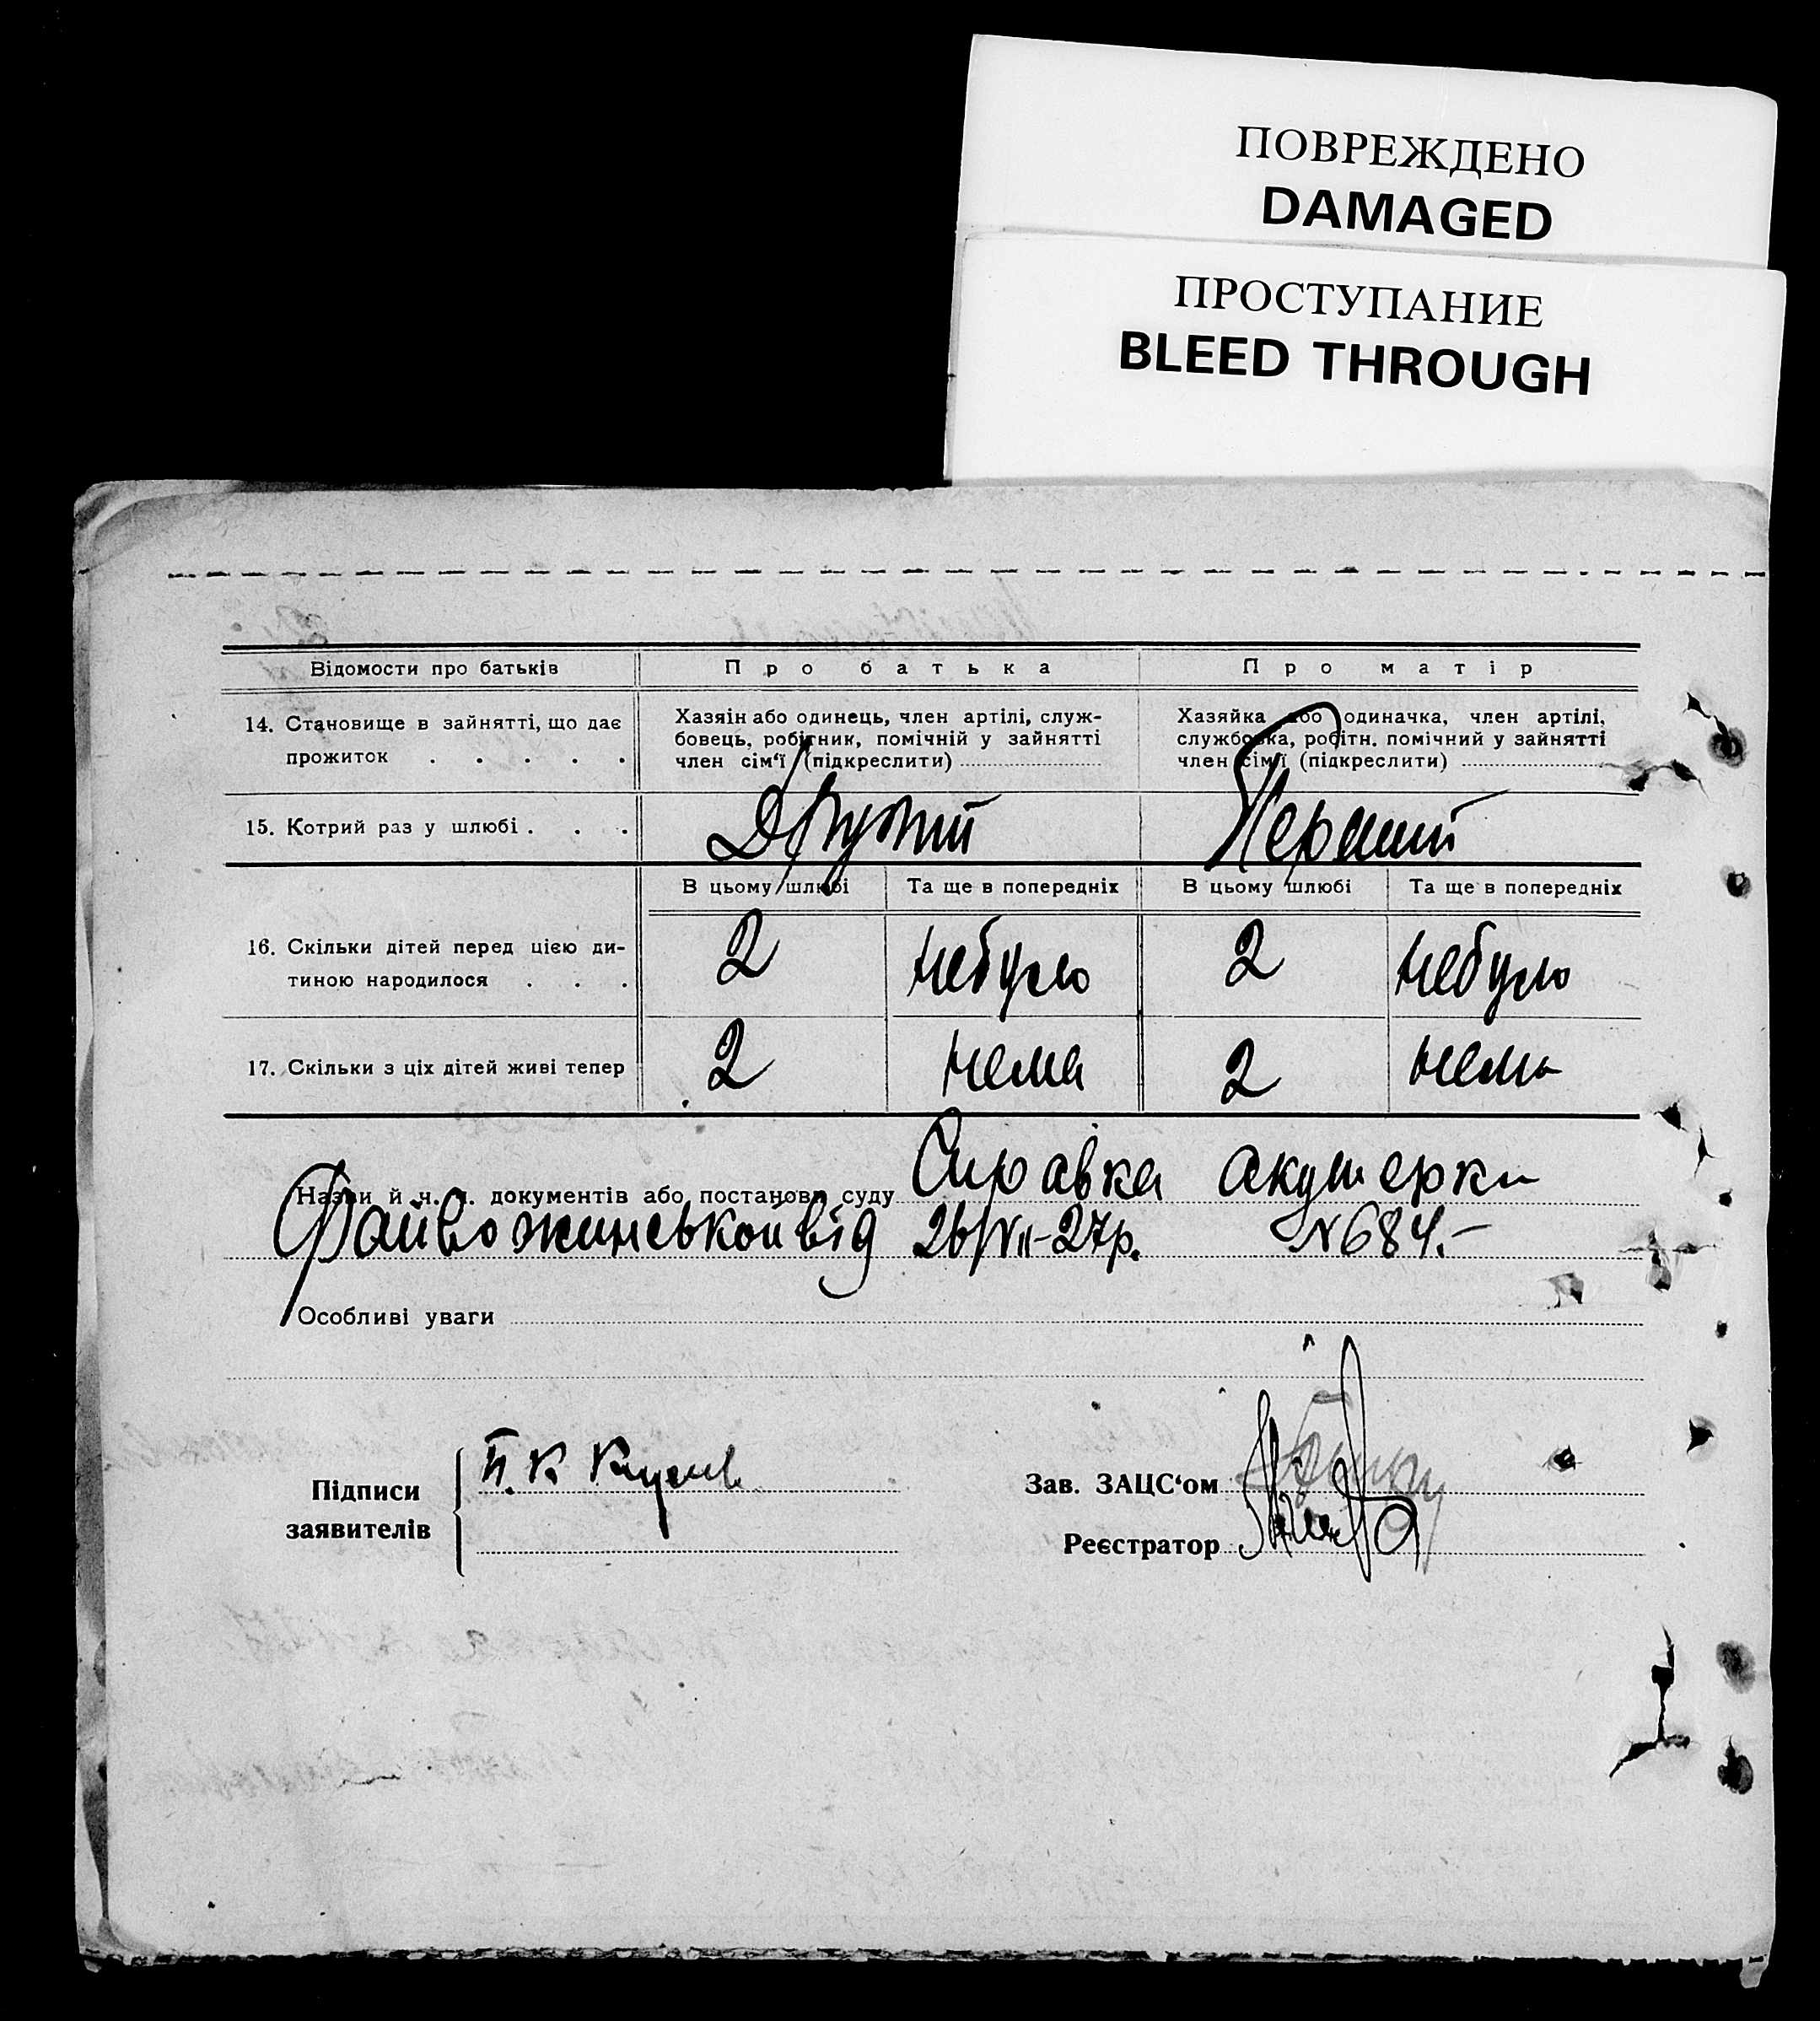 ПОВРЕЖДЕНО
DAMAGED
ПРОСТУПАНИЕ
BLEED THROUGH
Відомости про батьків
Про батька
Про матір
14. Становище в зайнятті, що дає
прожиток . . . . .
Хазяін або одинець, член артілі, служ-
бовець, робітник, помічній у зайнятті
член сім'ї (підкреслити)
Хазяйка або одиначка, член артілі,
службовка, робітн. помічний у зайнятті
член сім'ї (підкреслити)
15. Котрий раз у шлюбі . . .
Другий
Перший
В цьому шлюбі
Та ще в попередніх
В цьому шлюбі
Та ще в попередніх
16. Скільки дітей перед цією ди-
тиною народилося . . .
2
небуло
2
небуло
17. Скільки з ціх дітей живі тепер
2
нема
2
нема
Назви й ч. ч. документів або постанови суду Справка акушерки
від 26/VII-27р. N 684.-
Особливі уваги
Підписи
заявителів
П. К
Зав. ЗАЦС'ом
Реєстратор